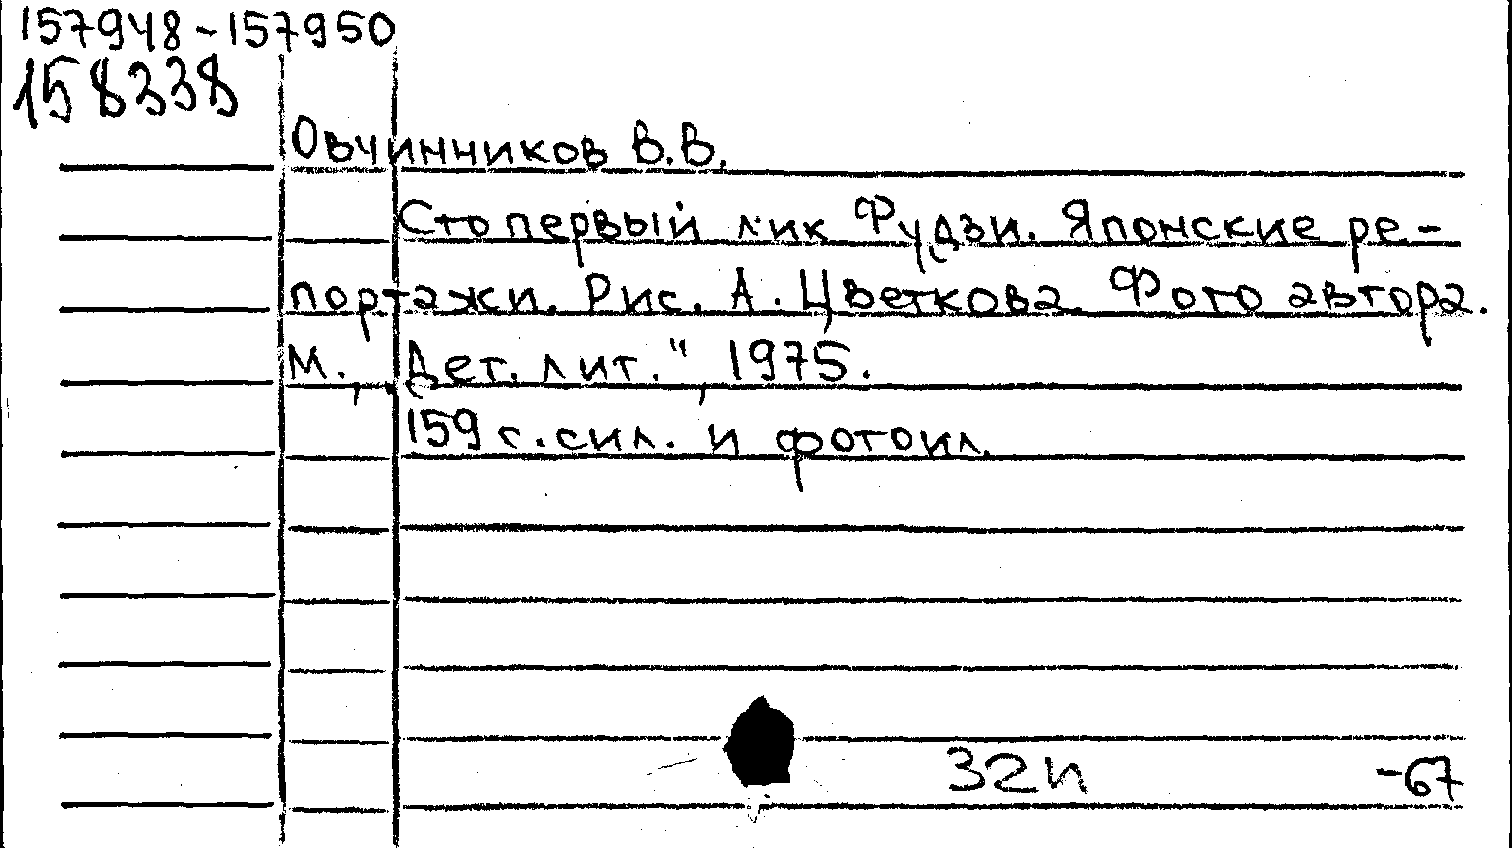 157948-157950
158338
Овчинников В.В.
Сто первый лик Фудзи. Японские ре-
портажи. Рис. А. Цветкова. Фото автора.
М., „Дет. лит.", 1975.
159 с. с ил. и фотоил.
32и -67